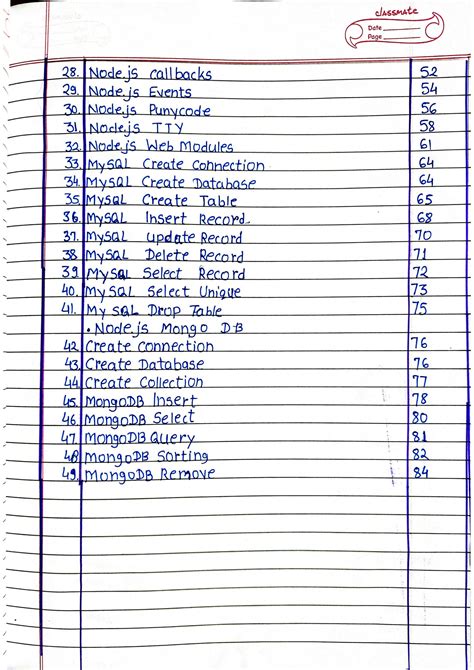 classmate
Date
Page
28. Node.js callbacks 52
29. Node.js Events 54
30. Node.js Punycode 56
31. Node.js TTY 58
32. Node.js Web Modules 61
33. MySQL Create Connection 64
34. MySQL Create Database 64
35. MySQL Create Table 65
36. MySQL Insert Record. 68
37. MySQL update Record 70
38 MySQL Delete Record 71
39 MySQL Select Record 72
40. MySQL Select Unique 73
41. My SQL Drop Table 75
• Node.js Mongo DB
42. Create Connection 76
43. Create Database 76
44. Create Collection 77
45. MongoDB Insert 78
46. MongoDB Select 80
47. MongoDB Query 81
48. MongoDB Sorting 82
49. MongoDB Remove 84